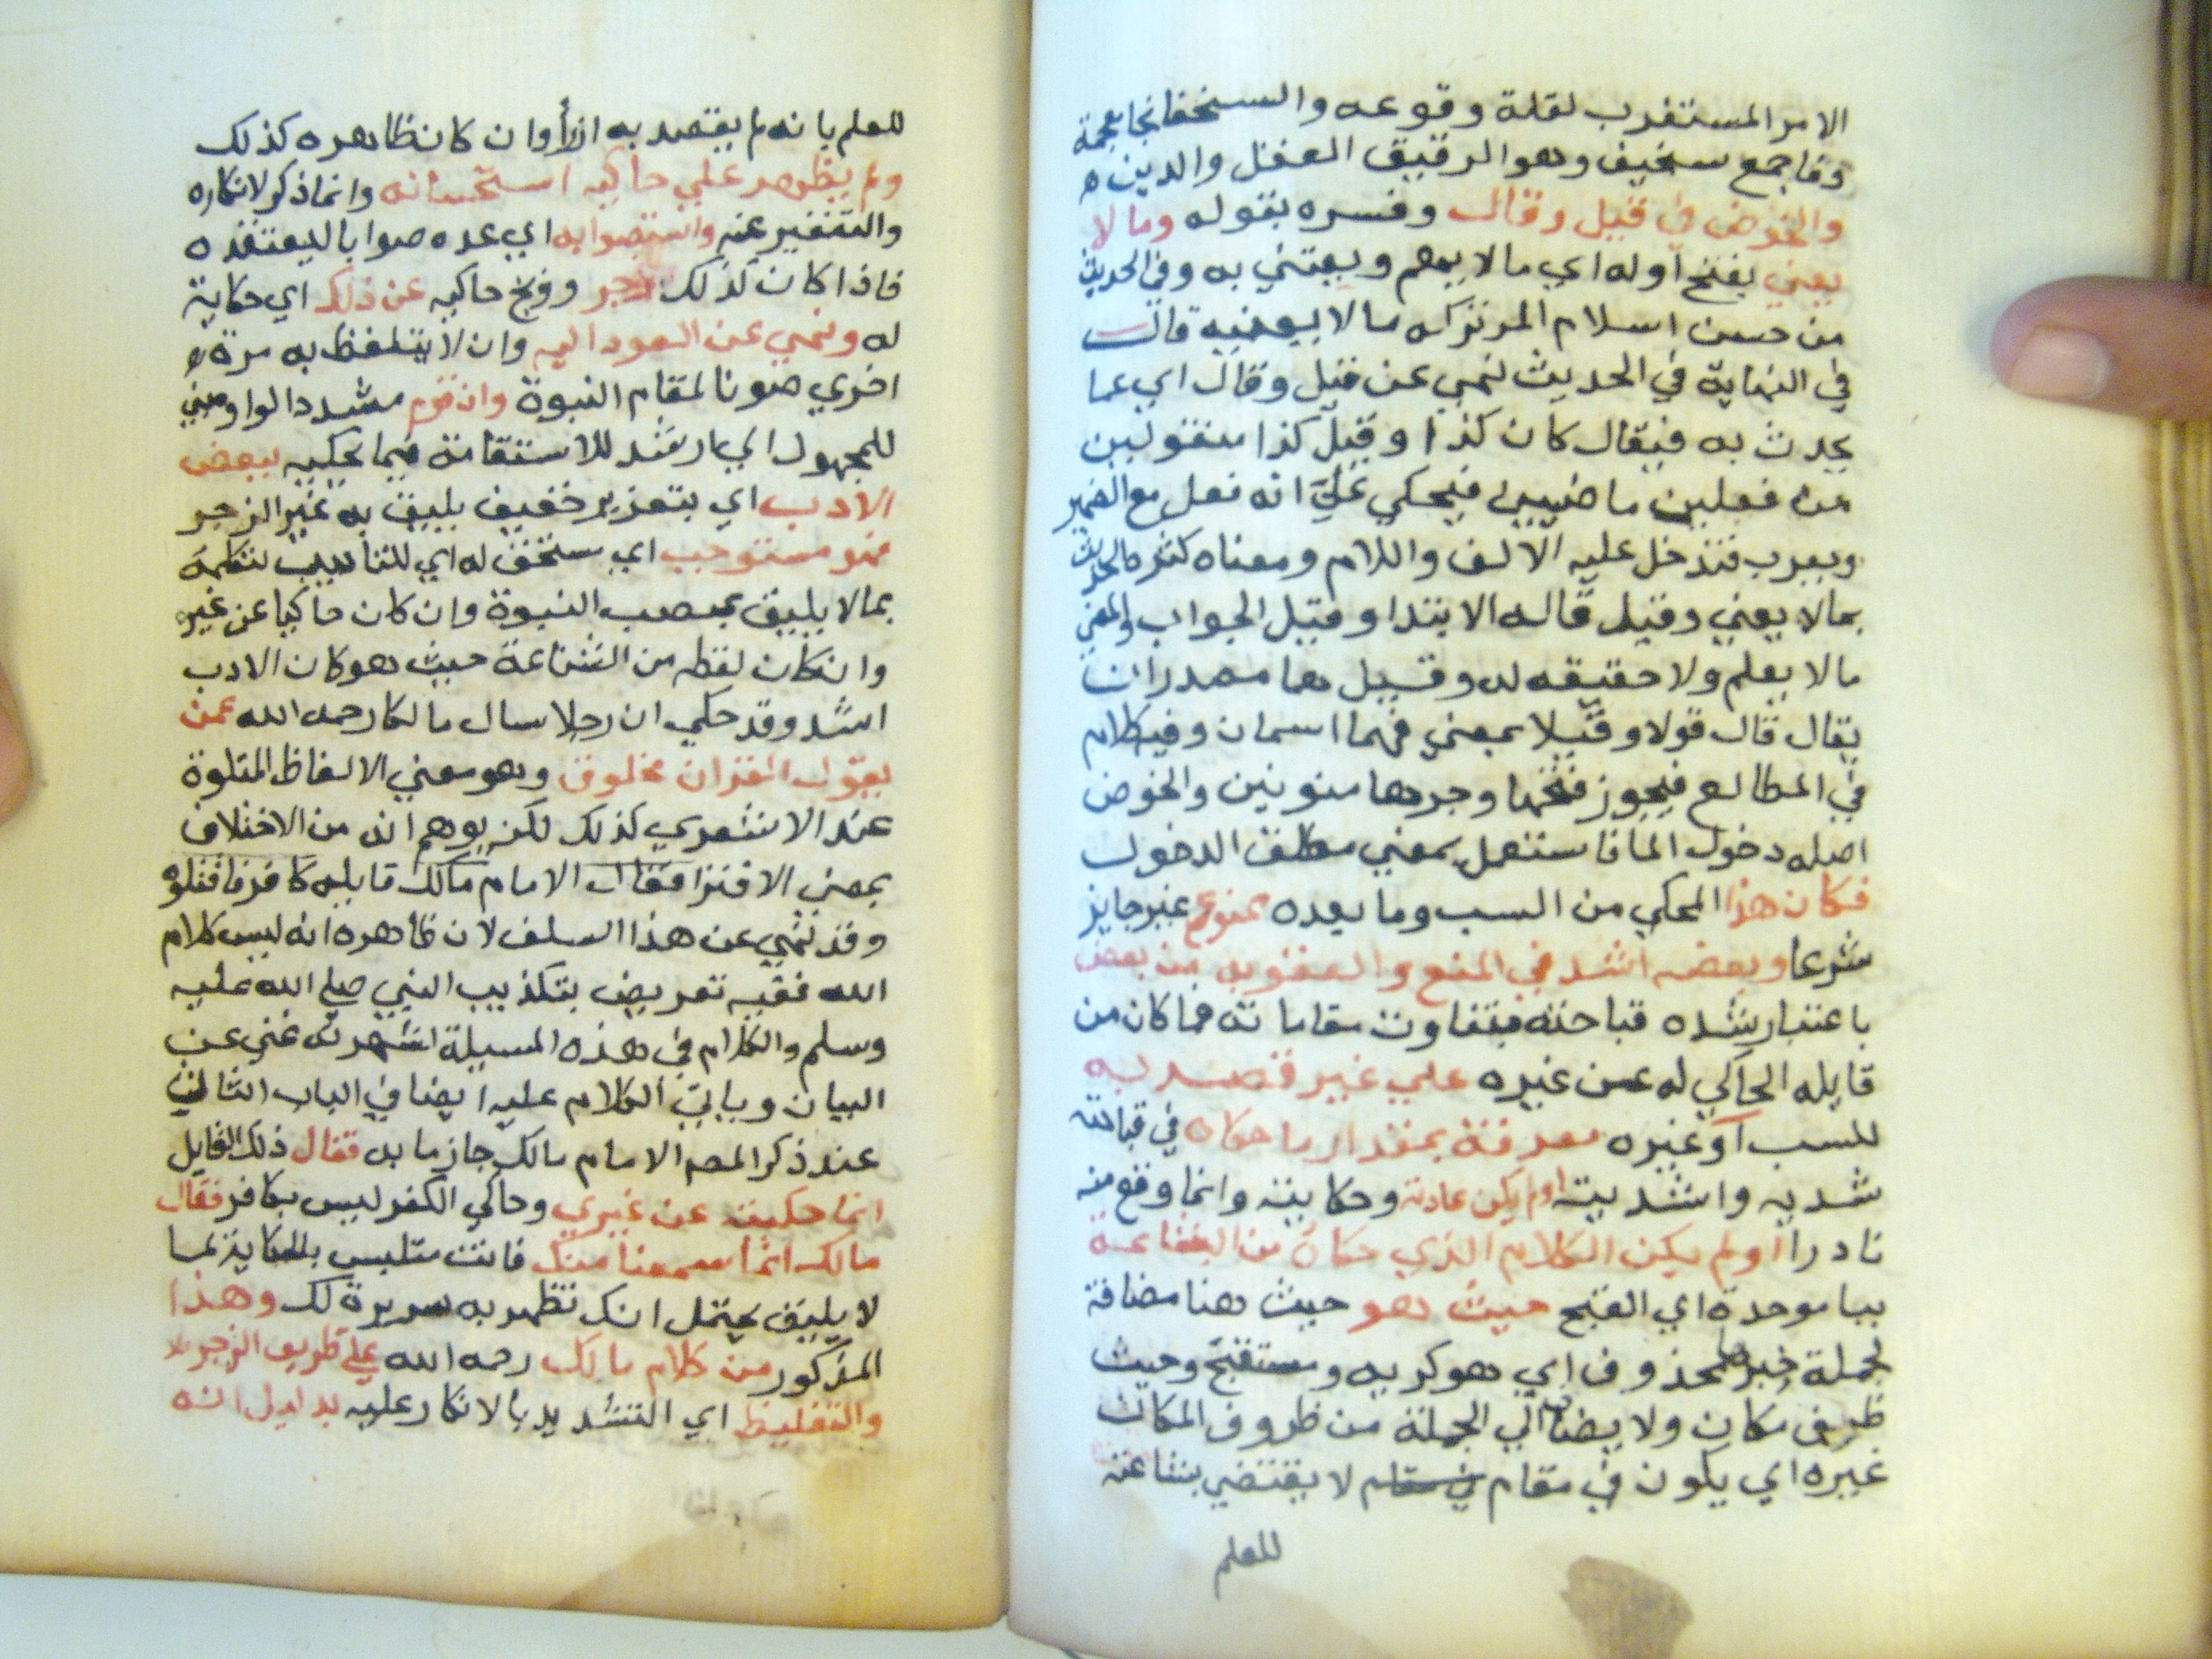 الامر المستغرب لقلة وقوعه والسخفا بخا معجمة
وفا جمع سخيف وهو الرقيق العقل والدين ه
والخوض في قيل وقال وفسره بقوله وما لا
يعني بفتح اوله اي ما لا يهم ويعتني به وفي الحديث
من حسن اسلام المرء تركه ما لا يعنيه قال
في النهاية في الحديث نهي عن قيل وقال اي عما
يحدث به فيقال كان كذا وقيل كذا منقولين
من فعلين ماضيين فيحكي علي انه فعل مع الضمير
ويعرب فتدخل عليه الالف واللام ومعناه كثرة الحديث
بما لا يعني وقيل قاله الابتدا وقيل الجواب والمعني
ما لا يعلم ولا حقيقه له وقيل هما مصدران
يقال قال قولا وقيلا بمعني فهما اسمان وفيه كلام
في المطالع فيجوز فتحها وجرهما منونين والخوض
اصله دخول الما فاستعمل بمعني مطلق الدخول
فكان هذا المحكي من السب وما بعده ممنوع غير جايز
شرعا وبعضه اشد في المنع والعقوبه من بعض
باعتبار شده قباحته فبتفاوت مقاماته فما كان من
قايله الحاكي له عن غيره علي غير قصد به
للسب او غيره معرفة بمقدار ما حكاه في قباحته
شديه واشديته اولم يكن عادته وحكايته وانما وقع منه
نادرا اولم يكن الكلام الذي حكاه من البشاعة
ببا موحدة اي القبح حيث هو حيث هنا مضافة
لجملة خبرها محذوف اي هو كريه ومستقبح وحيث
ظرف مكان ولا يضاف الي الجملة من ظروف المكان
غيره اي يكون في مقام لا يقتضي بشاعته
للعلم
للعلم بانه لم يقصد به ازرأ وان كان ظاهره كذلك
ولم يظهر علي حاكيه استحسانه وانما ذكر لانكاره
والتنفير عنه واستصوابه اي عده صوابا ليعتقده
فاذا كان كذلك زجر ووبخ حاكيه عن ذلك اي حكاية
له ونهي عن العود اليه وان لا يتلفظ به مرة
اخري صونا لمقام النبوة وان قوم مشدد الواو مبني
للمجهول اي ارشد للاستقامة فيما يحكيه ببعض
الادب اي بتعزير خفيف يليق به غير الزجر
فهو مستوجب اي مستحق له اي للتاديب لتكلمه
بما لا يليق بمنصب النبوة وان كان حاكيا عن غيره
وان كان لفظه من الشناعة حيث هو كان الادب
اشد وقد حكي ان رجلا سال مالكا رحمه الله عمن
يقول القران مخلوق وهو معني الالفاظ المتلوة
عند الاشعري كذلك لكن يوهم انه من الاختلاق
بمعني الافترا فقال الامام مالك قايله كافر فاقتلوه
وقد نهي عن هذا السلف لان ظاهره انه ليس كلام
الله ففيه تعريض بتكذيب النبي صلي الله عليه
وسلم والكلام في هذه المسيلة اشهرته غني عن
البيان وياتي الكلام عليه ايضا في الباب الثالث
عند ذكر المصم الامام مالك جازما به فقال ذلك القايل
انما حكيته عن غيري وحاكي الكفر ليس بكافر فقال
مالك انما سمعنا منك فانت متلبس بالحكاية لما
لا يليق يحتمل انك تظهر به سريرة لك وهذا
المذكور من كلام مالك رحمه الله علي طريق الزجر له
والتغليظ اي التشديد بالانكار عليه بدليل انه